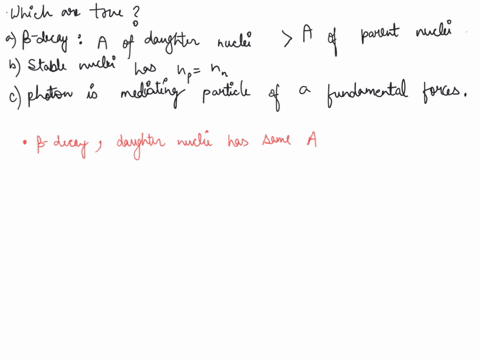 Which are true ?
a) β-decay : A of daughter nuclei > A of parent nuclei
b) Stable nuclei has np = nn
c) photon is mediating particle of a fundamental forces.
• β-decay , daughter nuclei has same A